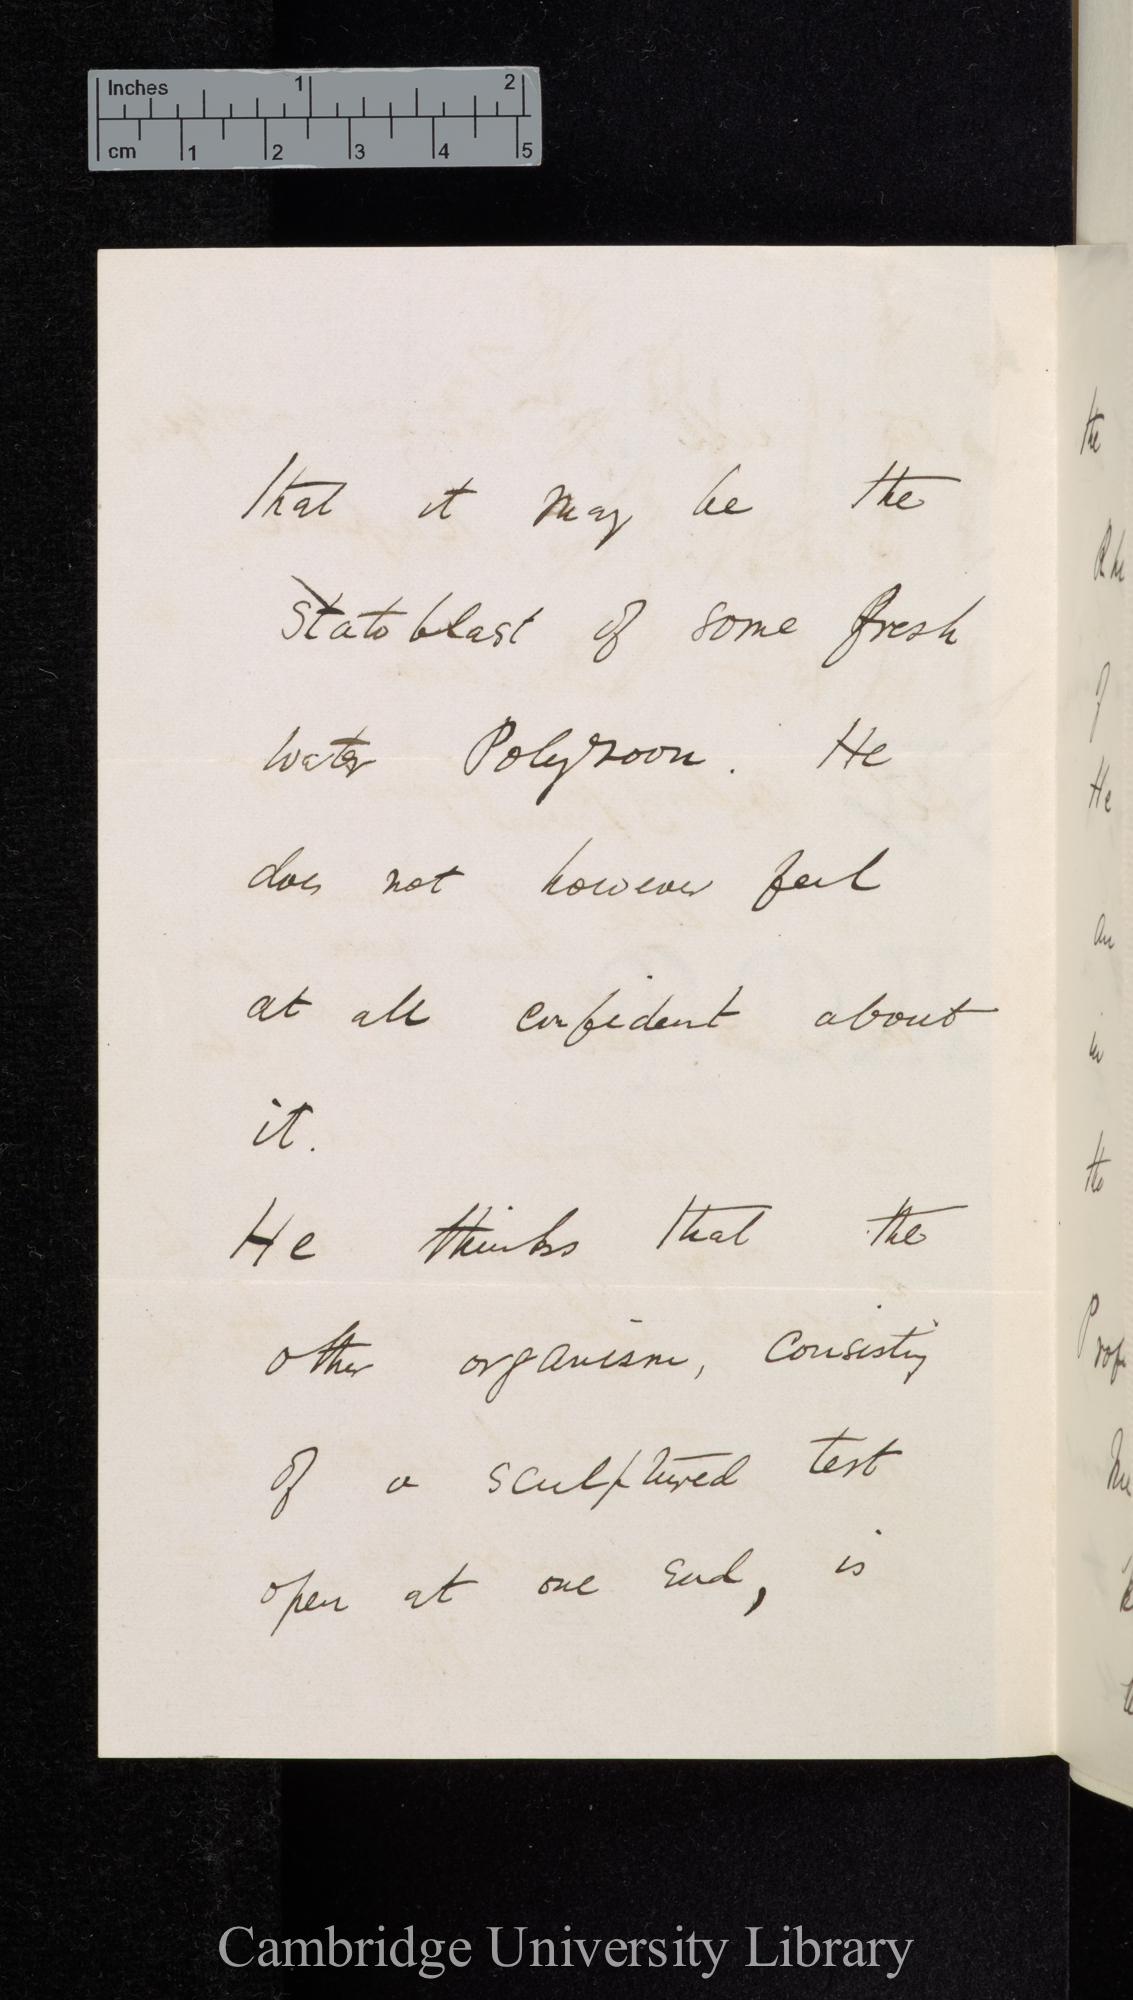 Inches 1 2
cm 1 2 3 4 5
that it may be the
Statoblast of some fresh
water Polyzoon. He
does not however feel
at all confident about
it.
He thinks that the
other organism, consisting
of a sculptured test
open at one end, is
the
of
He
an
in
the
Cambridge University Library